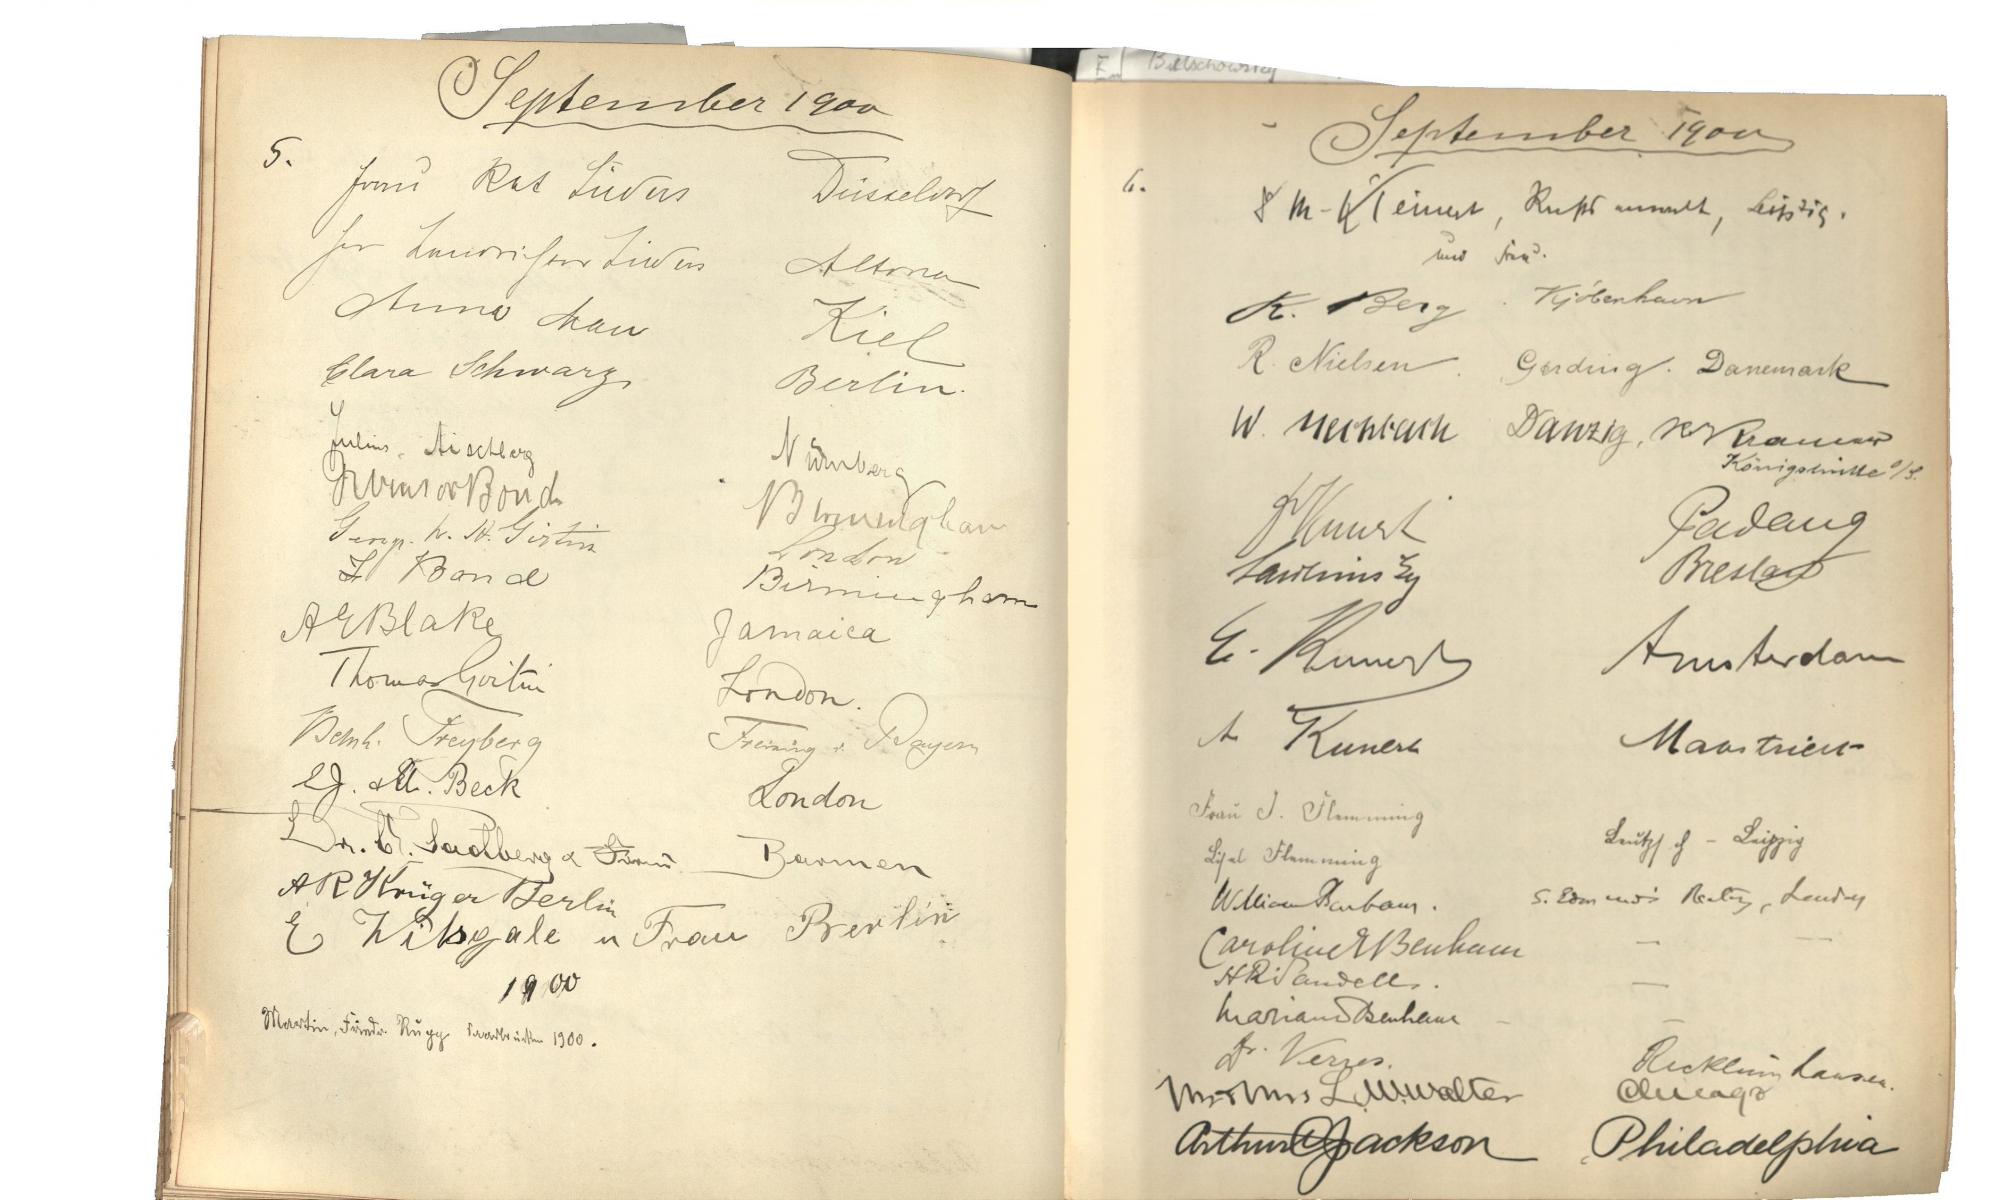 September 1900
5.
Frau Rat Lüders Düsseldorf
Lüders Altona
Anna Kiel
Clara Schwarz Berlin.
Julius Aischberg Nürnberg
Bond Birmingham
London
Bond Birmingham
A E Blake Jamaica
Thomas Girtin London.
Bernh. Freyberg Freising i. Bayern
& M. Beck London
Dr. & Frau Barmen
A R Krüger Berlin
E Witsgale u Frau Berlin
1900
Martin, Friedr. Rupp Saarbrücken 1900.
Bielschowsky
September 1900
6.
Kleinert, Rechtsanwalt, Leipzig.
und Frau.
K. Berg Kjöbenhavn
R. Nielsen Gerding. Danemark
W. Danzig, Kramer
Königshütte O/S.
Kunert Padang
Breslau
E. Kunert Amsterdam
A Kunert Maastricht
Frau J. Flemming
Leutzsch - Leipzig
Lisel Flemming
William Benham. S. Edmund's Rectory, London
Caroline E Benham — —
H R Sandell. —
Marian Benham – —
Dr. Verres. Recklinghausen.
Mr & Mrs L. M. Walter Chicago
Arthur C Jackson Philadelphia